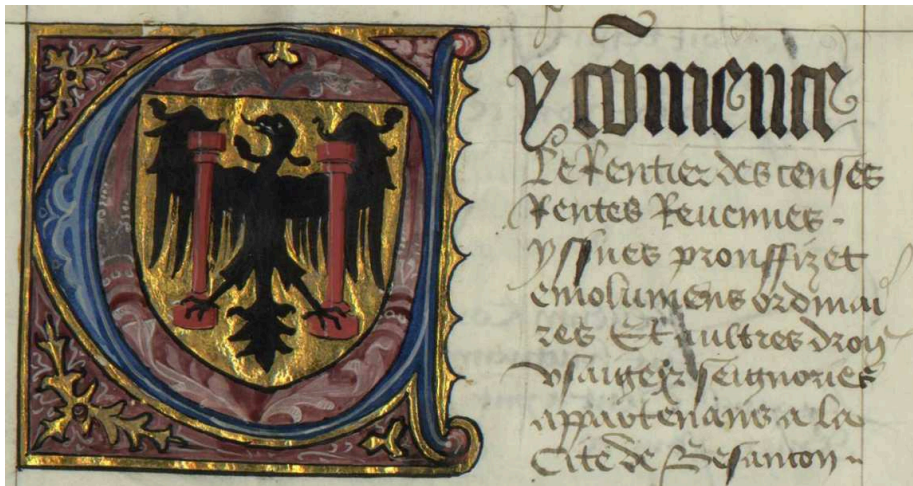 Cy cõmence
Le Rentier des censes
Rentes Reuennues.
yssues prouffiz et
emolumens ordinai
res Et aultres droiz
vsaiges seignories
appartenans a la
Cite de Besancon